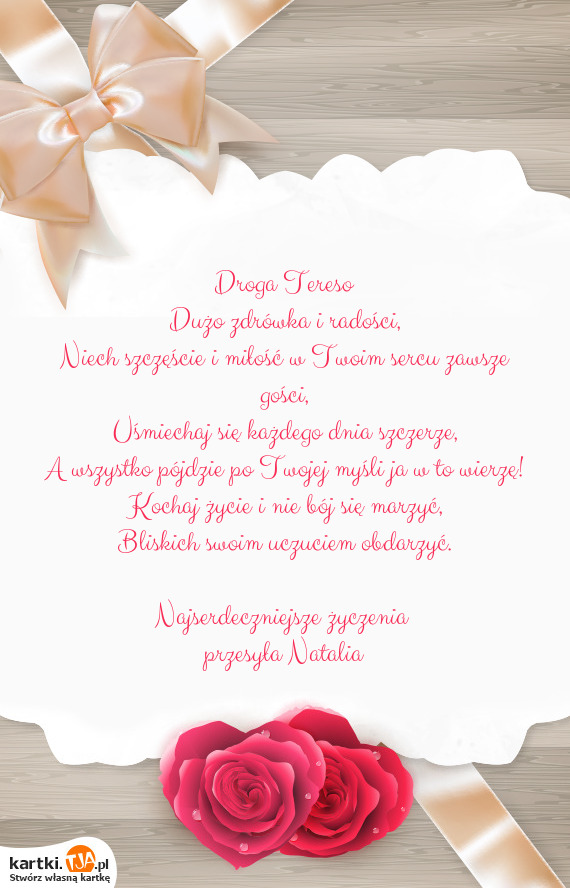 Droga Tereso
Dużo zdrówka i radości,
Niech szczęście i miłość w Twoim sercu zawsze
gości,
Uśmiechaj się każdego dnia szczerze,
A wszystko pójdzie po Twojej myśli ja w to wierzę!
Kochaj życie i nie bój się marzyć,
Bliskich swoim uczuciem obdarzyć.
Najserdeczniejsze życzenia
przesyła Natalia
kartki.TJA.pl
Stwórz własną kartkę